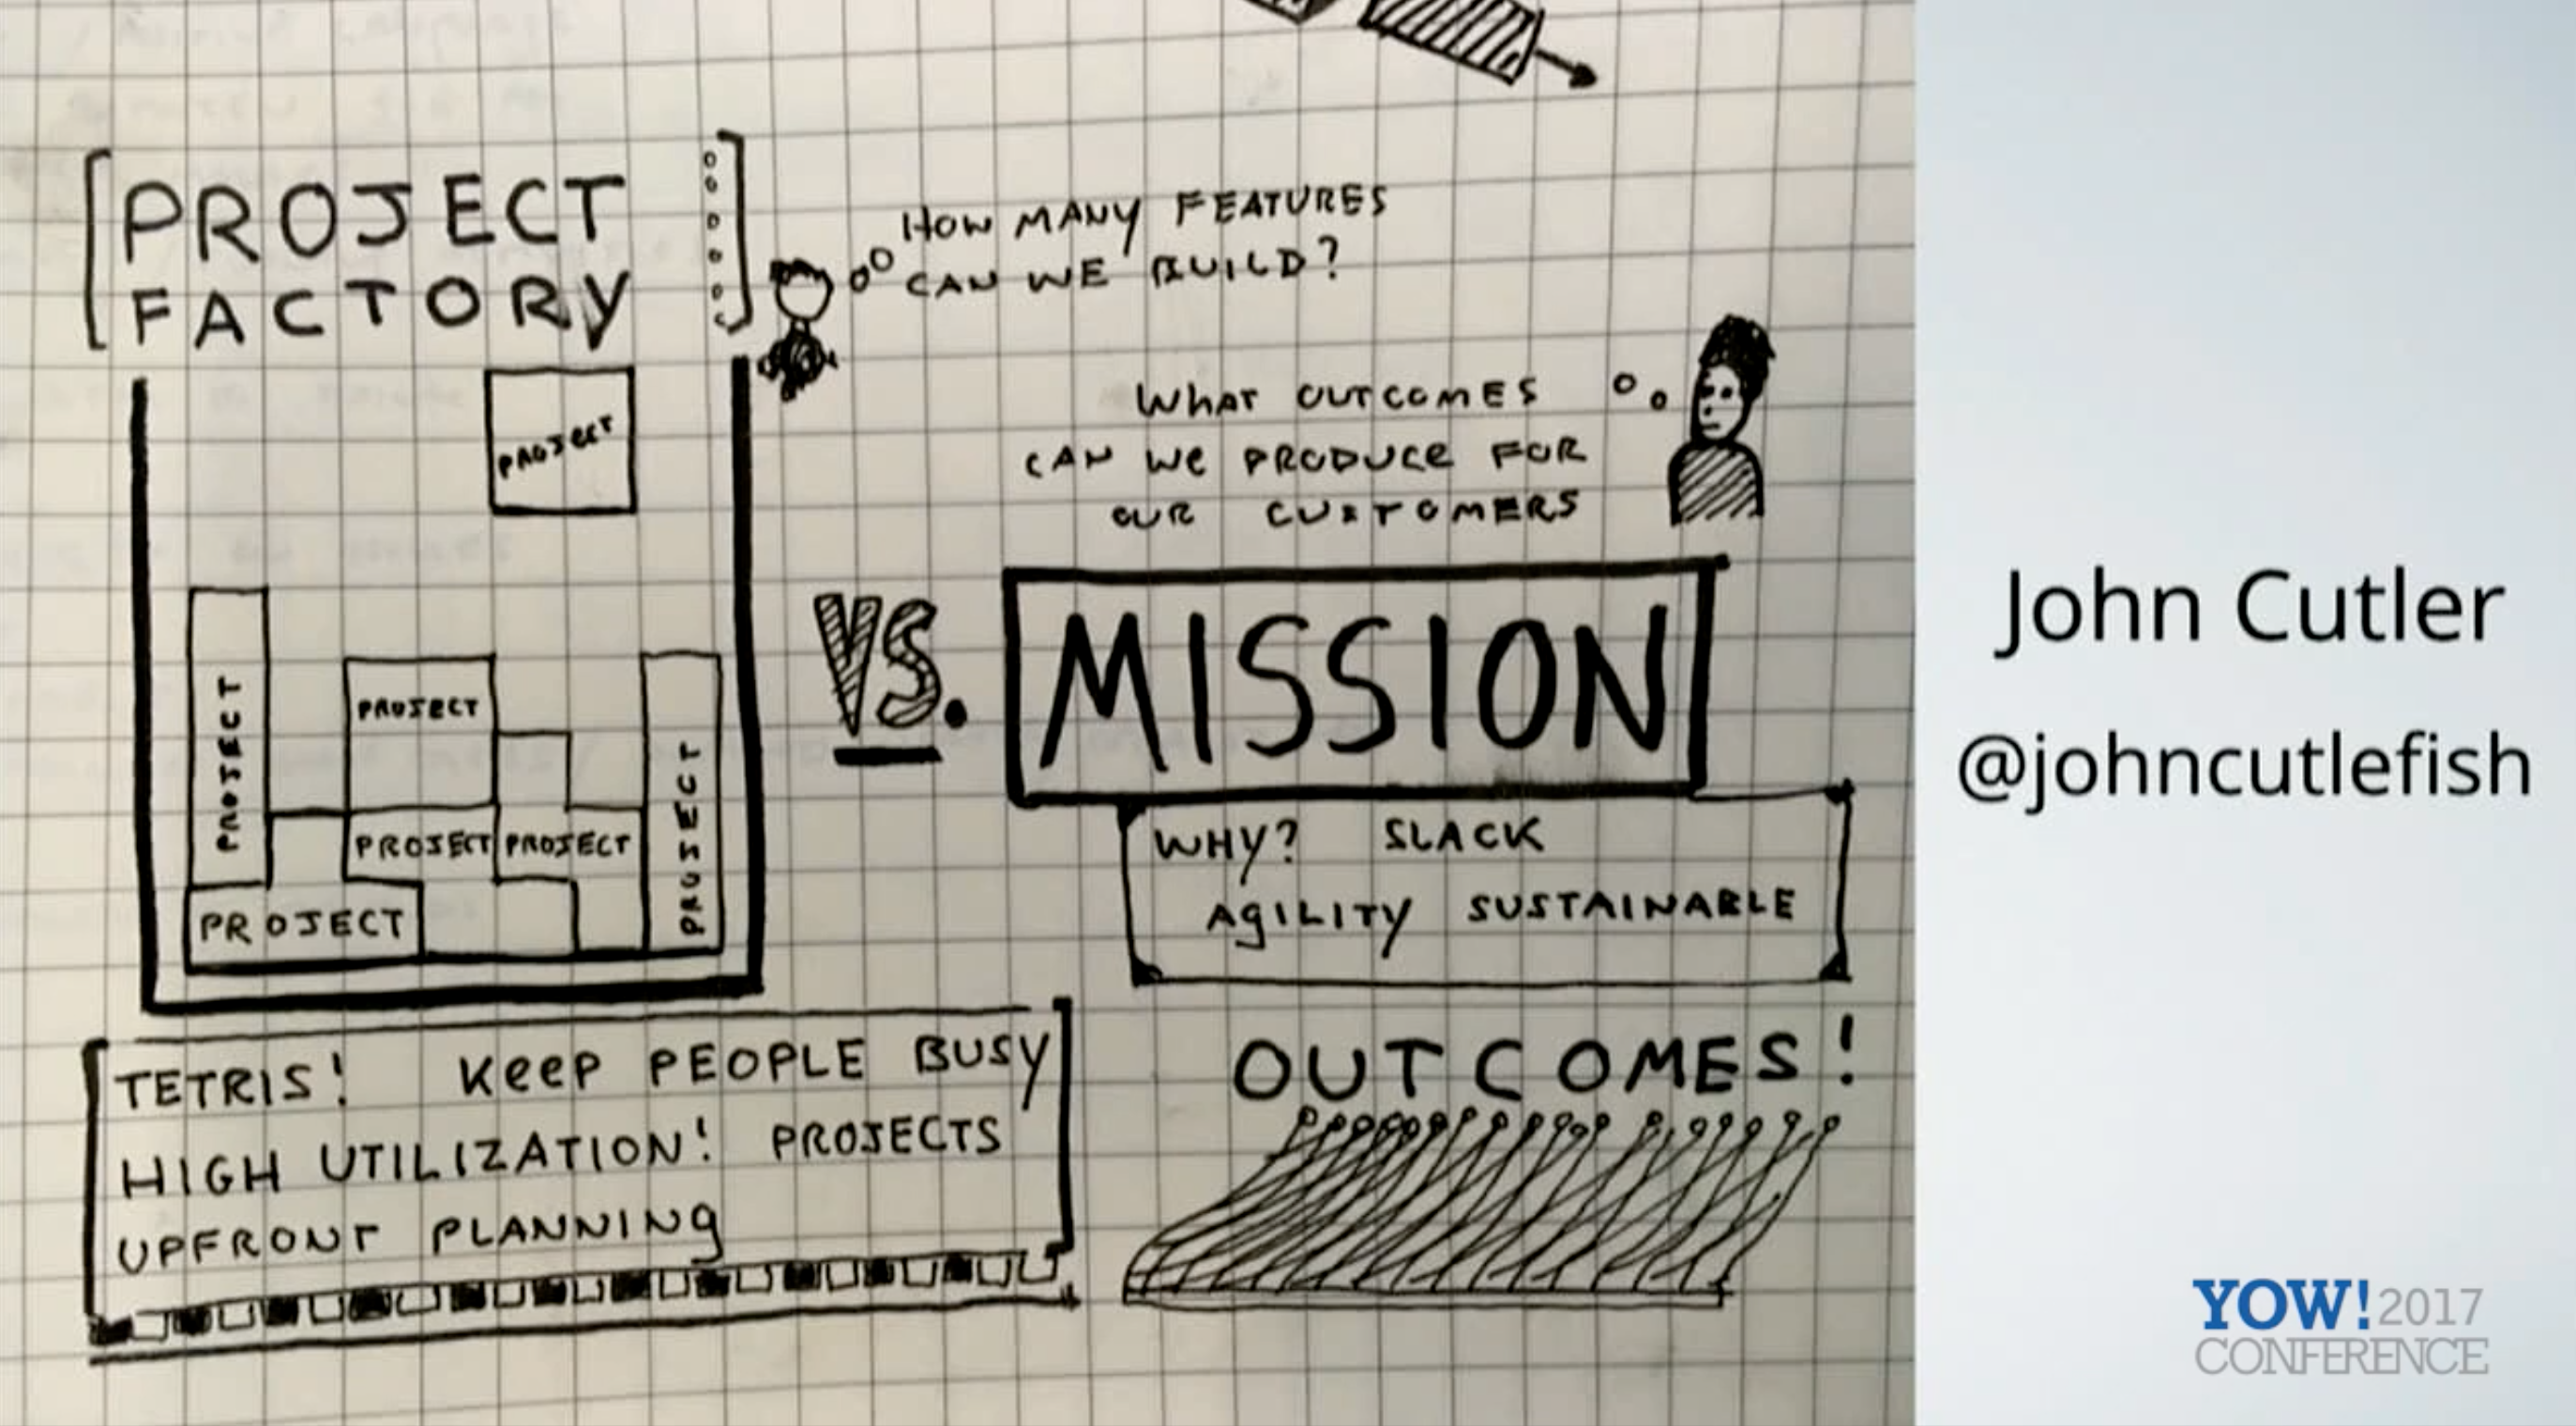 PROJECT
FACTORY
HOW MANY FEATURES
CAN WE BUILD?
WHAT OUTCOMES
CAN WE PRODUCE FOR
OUR CUSTOMERS
PROJECT
PROJECT
PROJECT
PROJECT
PROJECT
PROJECT
PROJECT
VS.
MISSION
WHY? SLACK
AGILITY SUSTAINABLE
TETRIS! KEEP PEOPLE BUSY
HIGH UTILIZATION! PROJECTS
UPFRONT PLANNING
OUTCOMES!
John Cutler
@johncutlefish
YOW! 2017
CONFERENCE